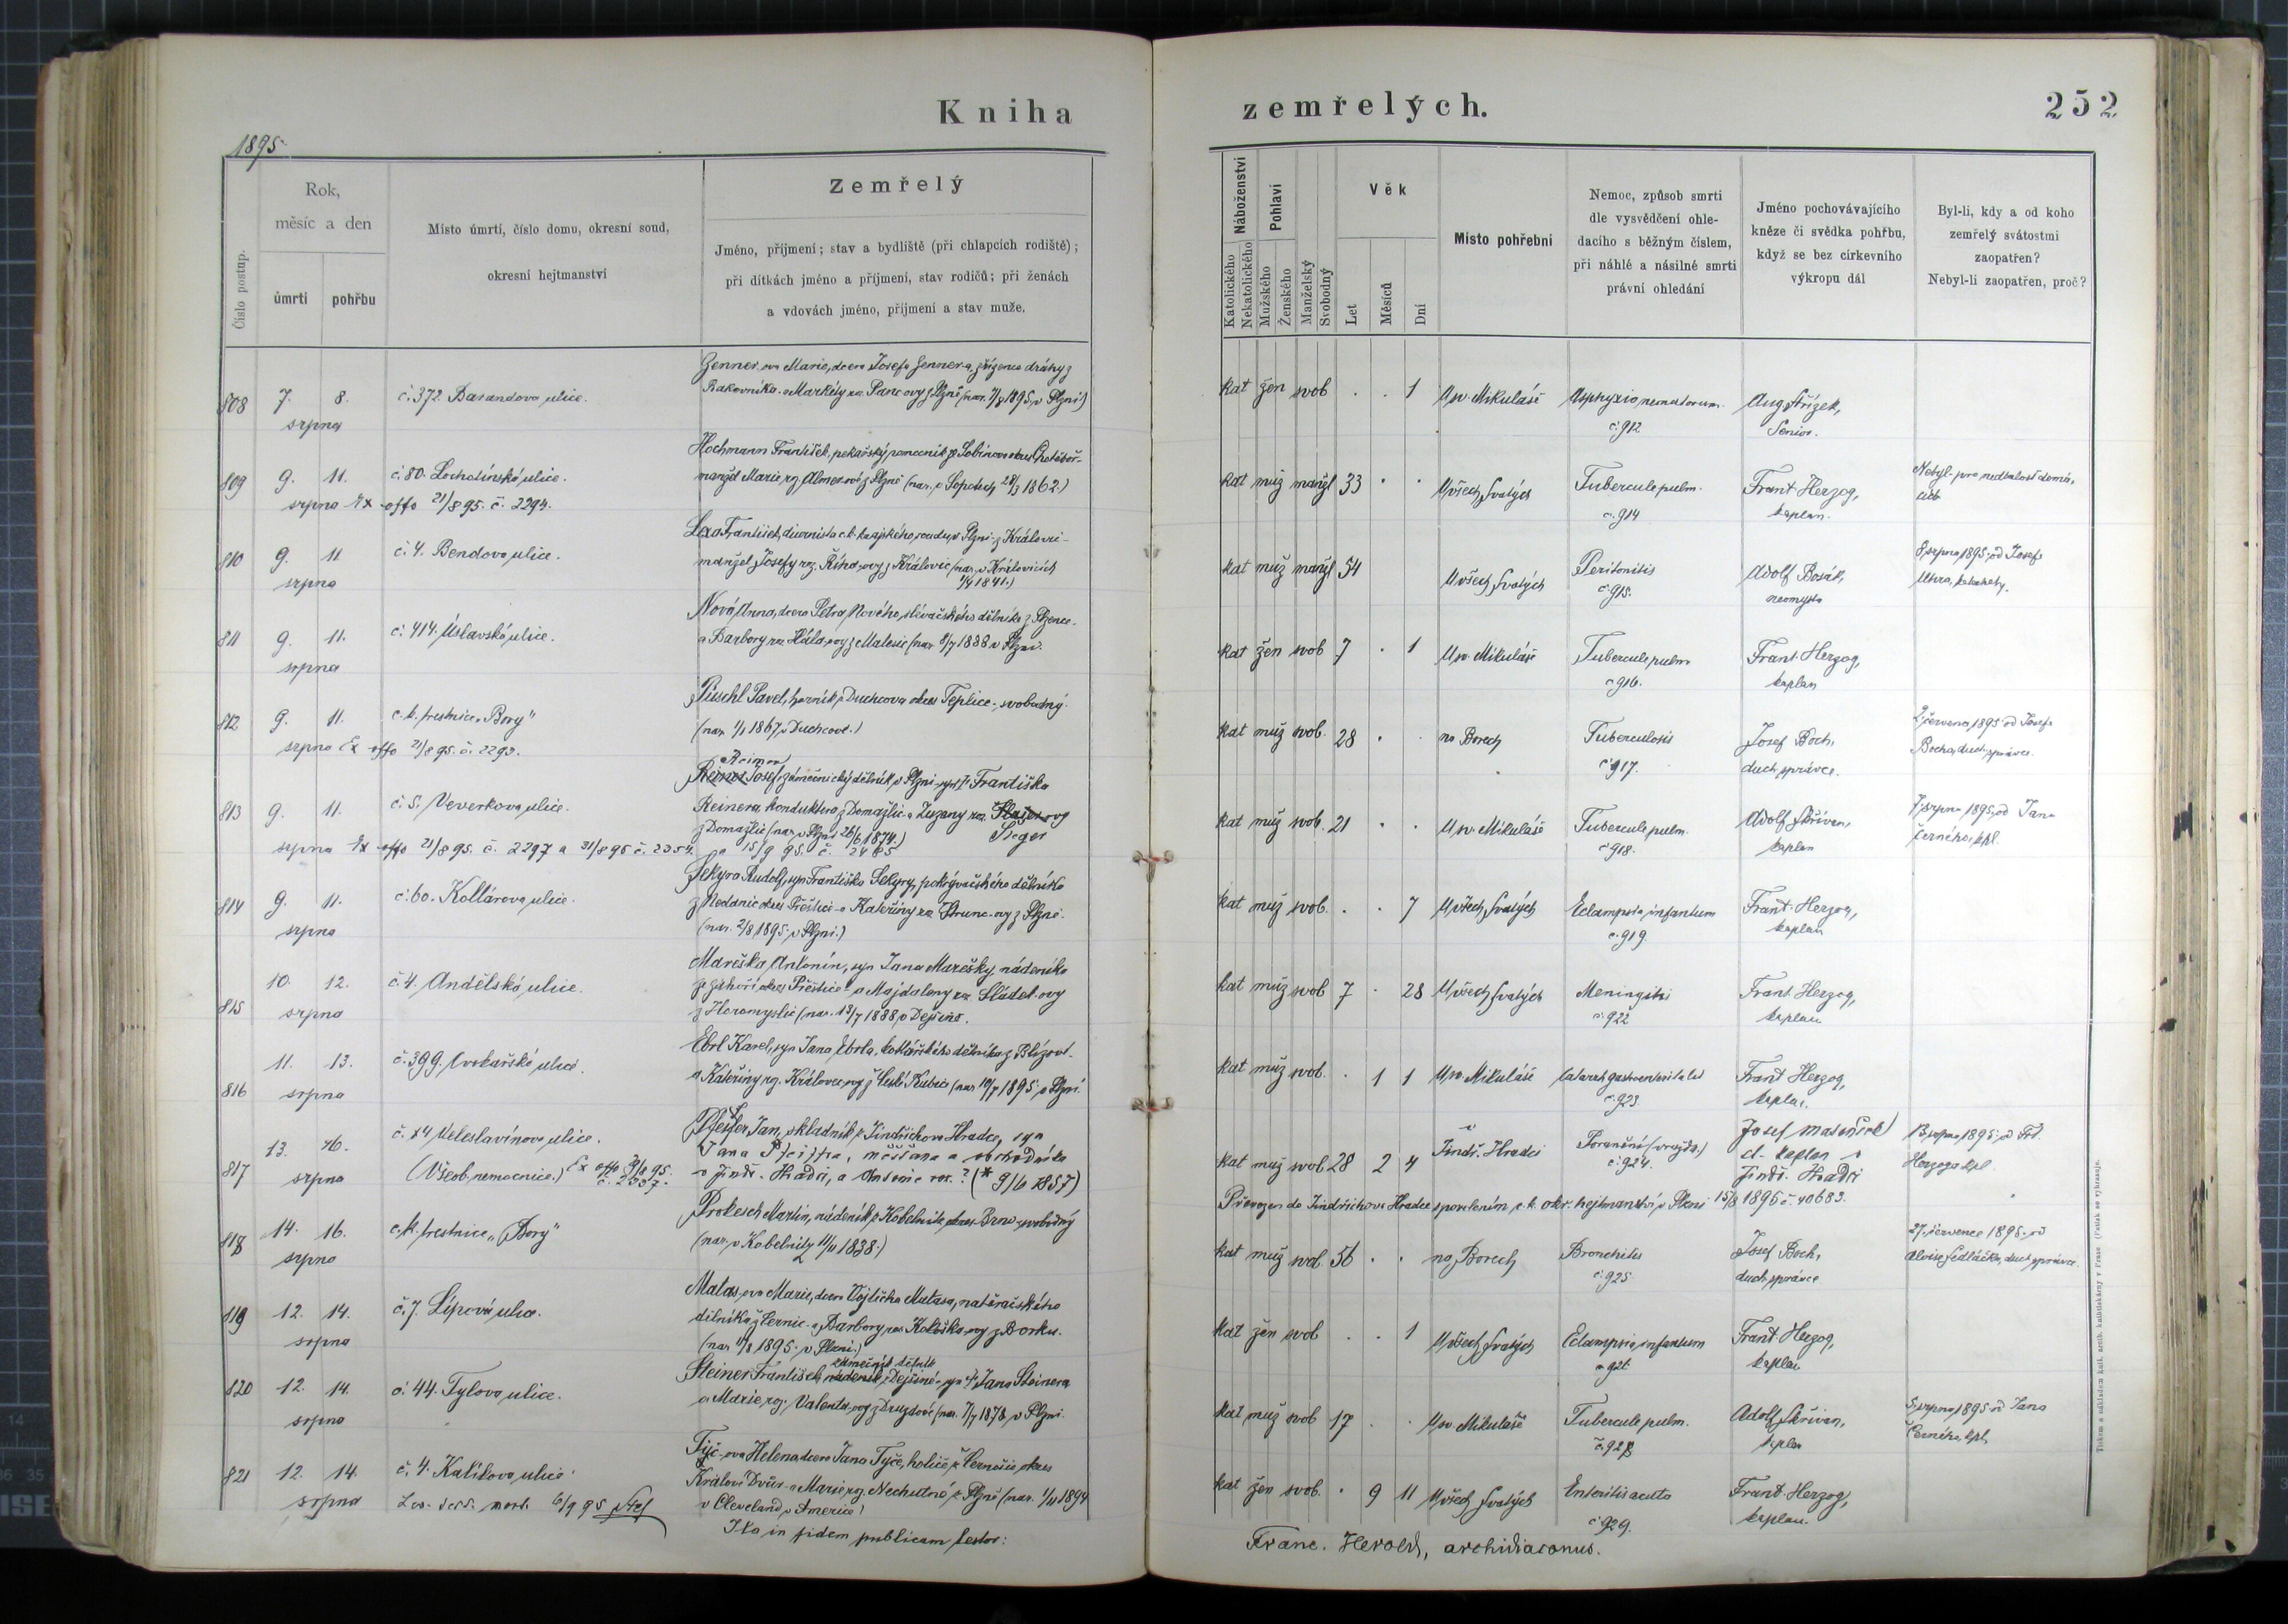 Kniha
zemřelých.
252
1895
Číslo postup.
Rok,
měsíc a den
úmrtí
pohřbu
Místo úmrtí, číslo domu, okresní soud,
okresní hejtmanství
Zemřelý
Jméno, příjmení; stav a bydliště (při chlapcích rodiště);
při dítkách jméno a příjmení, stav rodičů; při ženách
a vdovách jméno, příjmení a stav muže.
Náboženství
Katolického
Nekatolického
Pohlaví
Mužského
Ženského
Manželský
Svobodný
Věk
Let
Měsíců
Dní
Místo pohřební
Nemoc, způsob smrti
dle vysvědčení ohle-
dacího s běžným číslem,
při náhlé a násilné smrti
právní ohledání
Jméno pochovávajícího
kněze či svědka pohřbu,
když se bez církevního
výkropu dál
Byl-li, kdy a od koho
zemřelý svátostmi
zaopatřen?
Nebyl-li zaopatřen, proč?
808 7. 8. srpna
č. 372. Barandova ulice.
Zenner-ova Marie, dcera Josefa Zennera, zřízence dráhy z
Rakovníka a Markéty roz. Pancovy z Plzně (nar. 7/8 1895 v Plzni)
kat žen svob . . 1 U sv. Mikuláše
č. 912
Aug. Střízek,
Senior.
809 9. 11.
č. 80. Lochotínská ulice.
srpna Ex offo 21/8 95. č. 2294.
Hochmann František, pekařský pomocník
manžel Marie roz. z Plzně 1862.)
kat muž manžel 33 . . U všech Svatých
Tubercule pulm.
č. 914
Frant. Herzog,
kaplan.
Nebyl pro nedbalost domá-
cích
810 9. 11 srpna
č. 4. Bendova ulice.
Lexa František, diurnista c. k. krajského soudu v Plzni z Královic
manžel Josefy roz. Říha-ovy z Královic (nar. v Královicích
1841.)
kat muž manžel 54 U všech Svatých
Peritonitis
č. 915.
Adolf Bosák,
neomysta
8. srpna 1895, od Josefa
811 9. 11. srpna
č. 414. Úslavská ulice.
Nová Anna, dcera Petra Nového, slévačského dělníka z Plzence
a Barbory roz. Hála-ovy z Malesic (nar. 8/7 1888 v Plzni.
kat žen svob 7 . 1 U sv. Mikuláše
Tubercule pulm
č. 916.
Frant. Herzog,
kaplan
812 9. 11.
c. k. trestnice „Bory"
srpna Ex offo 21/8 95. č. 2293.
Püschl Pavel, horník z Duchcova okres Teplice, svobodný
(nar. 1/1 1867 v Duchcově.)
kat muž svob. 28 . . na Borech
Tuberculosis
č. 917.
Josef Boch,
duch. správce.
2. června 1895 od Josefa
Bocha, duch. správce.
813 9. 11.
č. 5. Veverkova ulice.
srpna Ex offo 21/8 95. č. 2297 a 31/8 95 č. 2354. a 15/9 95. č. 2485
Reiner
Reiner Josef, zámečnický dělník v Plzni, syn † Františka
Reinera, konduktera z Domažlic a Zuzany roz.
z Domažlic (nar. v Plzni 26/6 1874.) Steger
kat muž svob. 21 . . U sv. Mikuláše
Tubercule pulm.
č. 918.
Adolf Skřivan,
kaplan
7. srpna 1895, od Jana
Černého, kpl.
814 9. 11. srpna
č. 60. Kollárova ulice.
Sekyra Rudolf, syn Františka Sekyry, pokrývačského dělníka
z Nedanic okres Přeštice a Kateřiny roz. Strunc-ovy z Plzně.
(nar. 2/8 1895 v Plzni.)
kat muž svob. . . 7 U všech Svatých
Eclampsia infantum
č. 919.
Frant. Herzog,
kaplan
815 10. 12. srpna
č. 4. Andělská ulice.
Mareška Antonín, syn Jana Marešky, nádeníka
ze Záhoří okres Přeštice a Majdaleny roz. Sládek-ovy
z Horomyslic (nar. 13/7 1888 v Dejšině.
kat muž svob 7 . 28 U všech Svatých
Meningitis
č. 922
Frant. Herzog,
kaplan
816 11. 13. srpna
č. 399. Cukrařská ulice.
Ebrl Karel, syn Jana Ebrla, kotlářského dělníka z Blížov
a Kateřiny roz. Královec-ovy z České Kubice (nar. 10/7 1895 v Plzni.
kat muž svob. . 1 1 U sv. Mikuláše
č. 923
Frant. Herzog,
kaplan.
817 13. 16. srpna
č. 14 Veleslavínova ulice.
(Všeob. nemocnice.) Ex offo 95.
č. 2337.
Pfeifer Jan, skladník z Jindřichova Hradce, syn
Jana Pfeifra, měšťana a obchodníka
v Jindř. Hradci, a Antonie roz. ? (* 9/6 1867)
kat muž svob 28 2 4 Jindř. Hradci
Poranění (vražda.)
č. 924.
Josef
kaplan v
Jindř. Hradci
13. srpna 1895, od Frt.
Herzoga kpl.
Převezen do Jindřichova Hradce s povolením c. k. okr. hejtmanství v Plzni 15/8 1895 č. 40683.
818 14. 16. srpna
c. k. trestnice „Bory"
Prokesch Martin, nádeník z Kobelnitz okres Brno svobodný
(nar. v Kobelnitz 11/11 1838.)
kat muž svob 56 . . na Borech
Bronchitis
č. 925
Josef Boch,
duch. správce
27. července 1895 od
Aloise Sedláčka, duch. správce.
819 12. 14. srpna
č. 7. Lípová ulice.
Matas-ova Marie, dcera Vojtěcha Matasa, natěračského
dělníka z Černic a Barbory roz. Kološka-ovy z Borku.
(nar. 11/8 1895 v Plzni.)
kat žen svob . . 1 U všech Svatých
Eclampsia infantum
č. 926
Frant. Herzog,
kaplan
820 12. 14. srpna
č. 44. Tylova ulice.
zámečník dělník
Steiner František, nádeník z Dejšiné, syn † Jana Steinera
a Marie roz. Valenta-ovy z Druzdové (nar. 7/7 1878 v Plzni.
kat muž svob 17 . . U sv. Mikuláše
Tubercule pulm.
č. 928
Adolf Skřivan,
kaplan
5. srpna 1895 od Jana
Černého, kpl.
821 12. 14. srpna
č. 4. Kalikova ulice
6/9 95
Tyč-ova Helena, dcera Jana Tyče, holiče z Černošic okres
Králové Dvůr a Marie roz. Nechutné z Plzně (nar. 1/11 1894
v Cleveland v Americe)
kat žen svob. . 9 11 U všech Svatých
Enteritis acuta
č. 929.
Frant. Herzog,
kaplan.
Ita in fidem publicam testor:
Franc. Herold, archidiaconus.